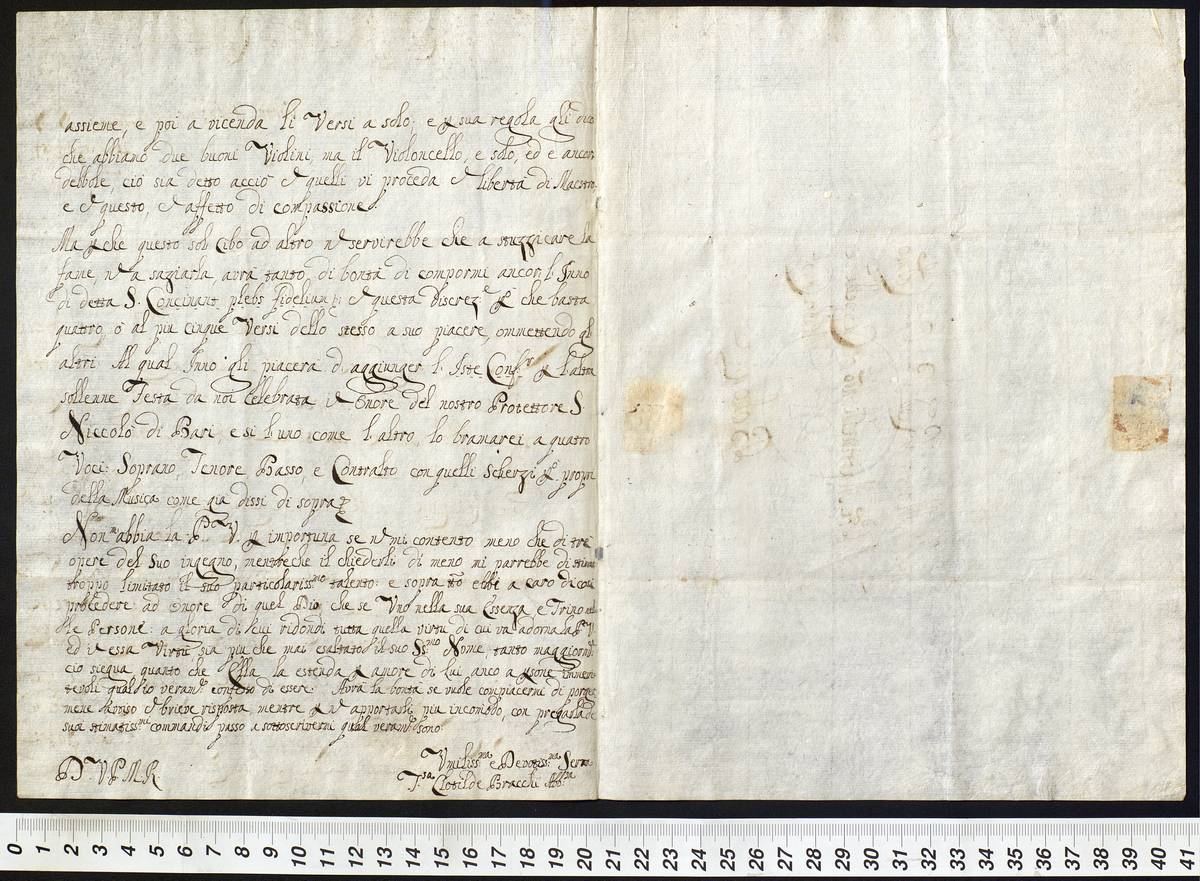 assieme, e poi a vicenda li Versi a solo; e p sua regola gli dico
che abbiamo due buoni Violini, ma il Violoncello, e solo, ed e ancor
debbole, ciò sia detto acciò quelli vi proceda libertà di Maestro
e questo, affetto di compassione.
Ma pche questo sol Cibo ad altro nõ servirebbe che a stuzzicare la
fame, nõ a saziarla, avrà tanto, di bontà di compormi ancor, l'Inno
di detta S. Concinant plebs fidelium questa discrez.e che basta
quattro, ò al più cinque Versi dello stesso a suo piacere, ommettendo gl
altri. Al qual Inno gli piacerà d'aggiunger l'Iste Conf.r p l'altra
sollenne Festa da noi Celebrata Onore del nostro Protettore S.
Niccolò di Bari, e si l'uno come l'altro, lo bramarei a quattro
Voci: Soprano, Tenore Basso, e Contralto con quelli Scherzi proprj
della Musica come già dissi di sopra
Non abbia la P. V. p importuna se nõ mi contento meno che di tre
opere del suo ingegno, mentreche il chiederli di meno mi parrebbe di stimar
troppo limitato il suo particolariss.mo talento: e sopra tto ebbi a caro di così
procedere ad Onore di quel Dio che se Uno nella sua Essenza, e Trino nel
le Persone: a gloria di cui ridondi tutta quella virtù di cui va adorna la P. V.
ed essa Virtù sia più che mai esaltato il suo SS.mo Nome, tanto maggiorm.te
ciò siegua, quanto che Ella la estenda p amore di lui anco a psone immeri
tevoli qual io veram.te confesso di essere. Avrà la bontà se vuole compiacermi di porger
mene avviso brieve risposta mentre p nõ apportarli più incomodo, con pregarla de
suoi stimatiss.mi commandi passo a sottoscrivermi qual veram.te sono
D. V P M R
Umiliss.ma e Devotiss.ma Serva
T.sa Clotilde Bracchi Abb.a